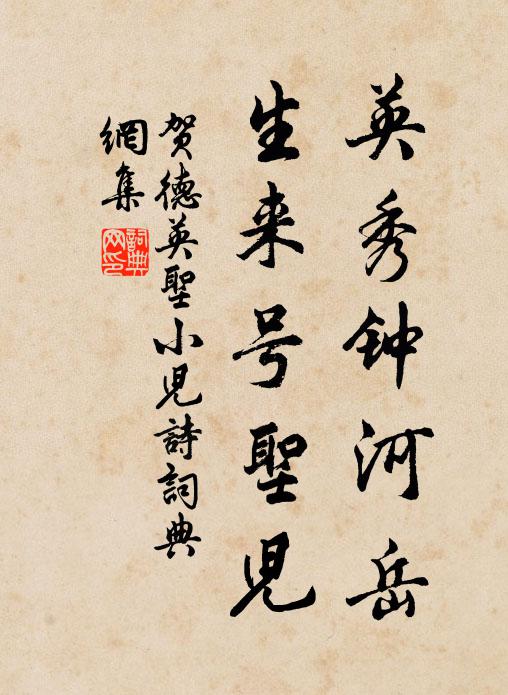 英秀钟河岳
生来号聖児
贺德英聖小児詩詞典
網集
詞典
网印